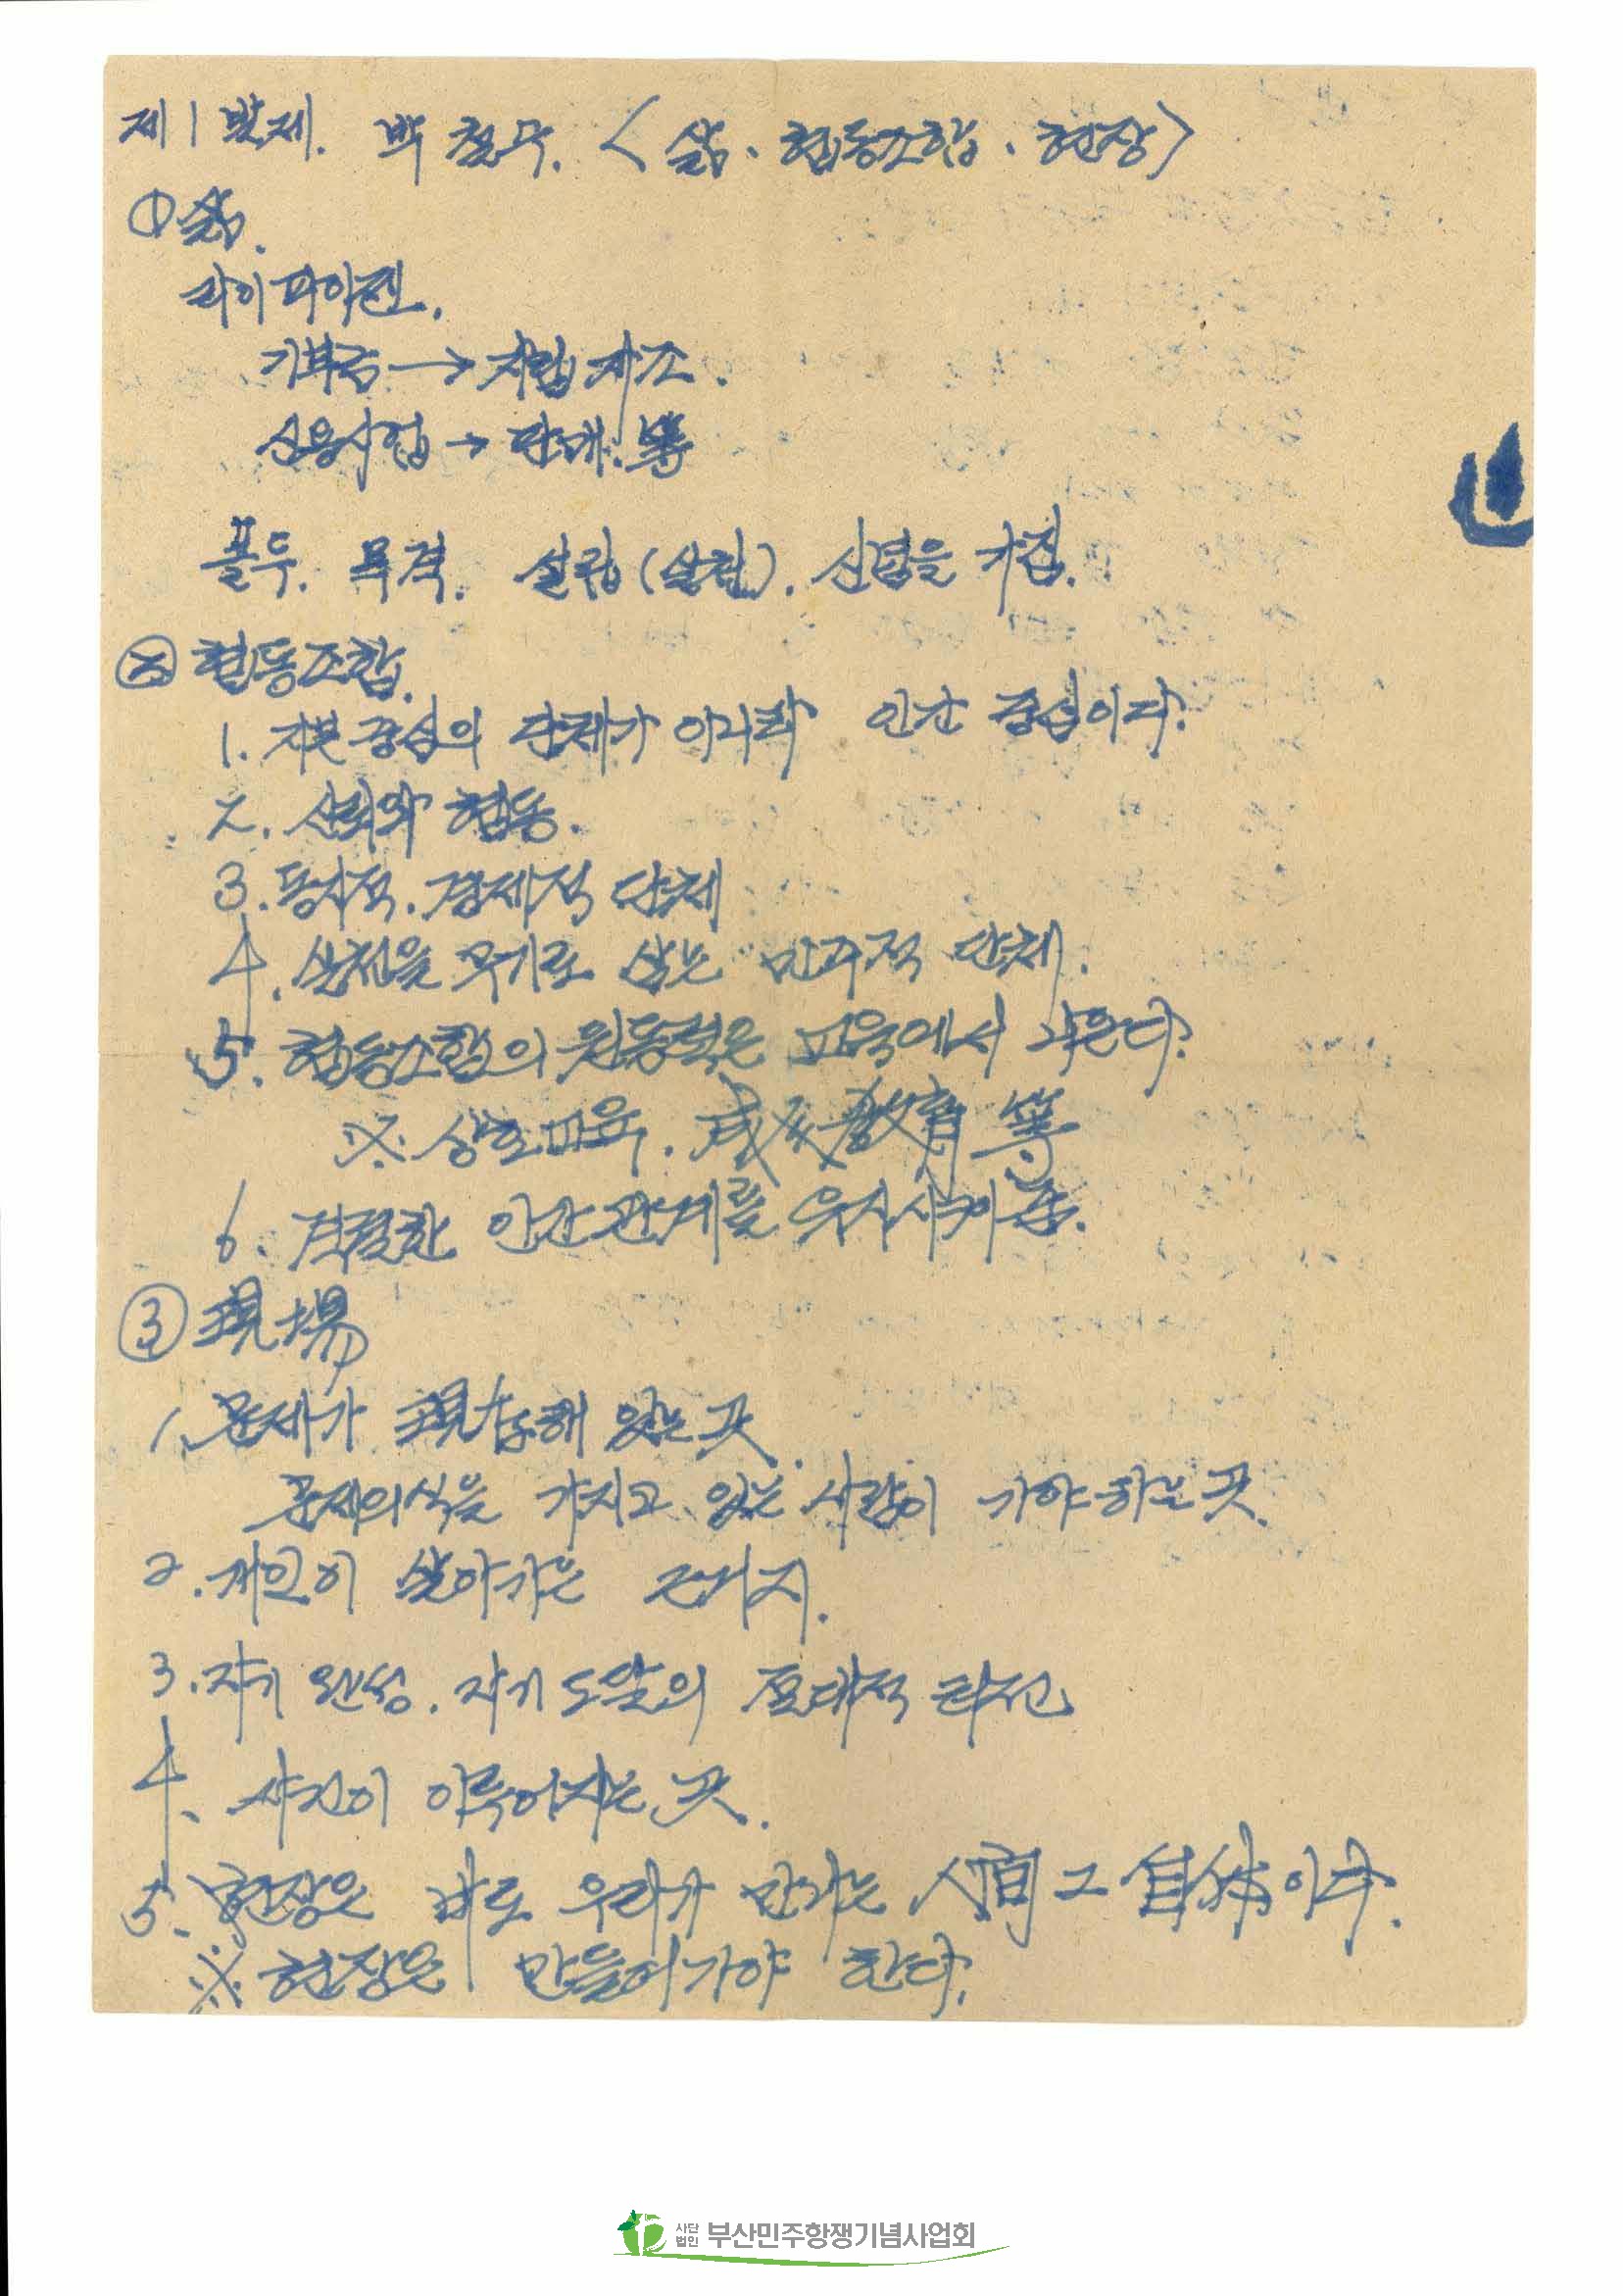 제1발제. 박철수. <삶、협동조합、현장>
①삶.
라이파이젠.
기부금→자립자조.
신용사업→판매.等
목적. 설립(살림). 신념을 가짐.
② 협동조합.
1. 자본중심의 단체가 아니라 인간 중심이다.
2. 신뢰와 협동.
3. 동지적. 경제적 단체
4. 실천을 무기로 삼는 민주적 단체.
5. 협동조합의 원동력은 교육에서 나온다.
※ 상호교육. 成人教育 等
6. 적절한 인간관계를 유지시켜 줌.
③ 現場
1. 문제가 現存해 있는 곳.
문제의식을 가지고 있는 사람이 가야 하는 곳.
2. 개인이 살아가는 근거지.
3. 자기 완성. 자기 도달의 토대적 터전
4. 사건이 이루어지는 곳.
5. 현장은 바로 우리가 만나는 人間 그 自体이다.
※ 현장은 만들어가야 한다.
사단법인 부산민주항쟁기념사업회